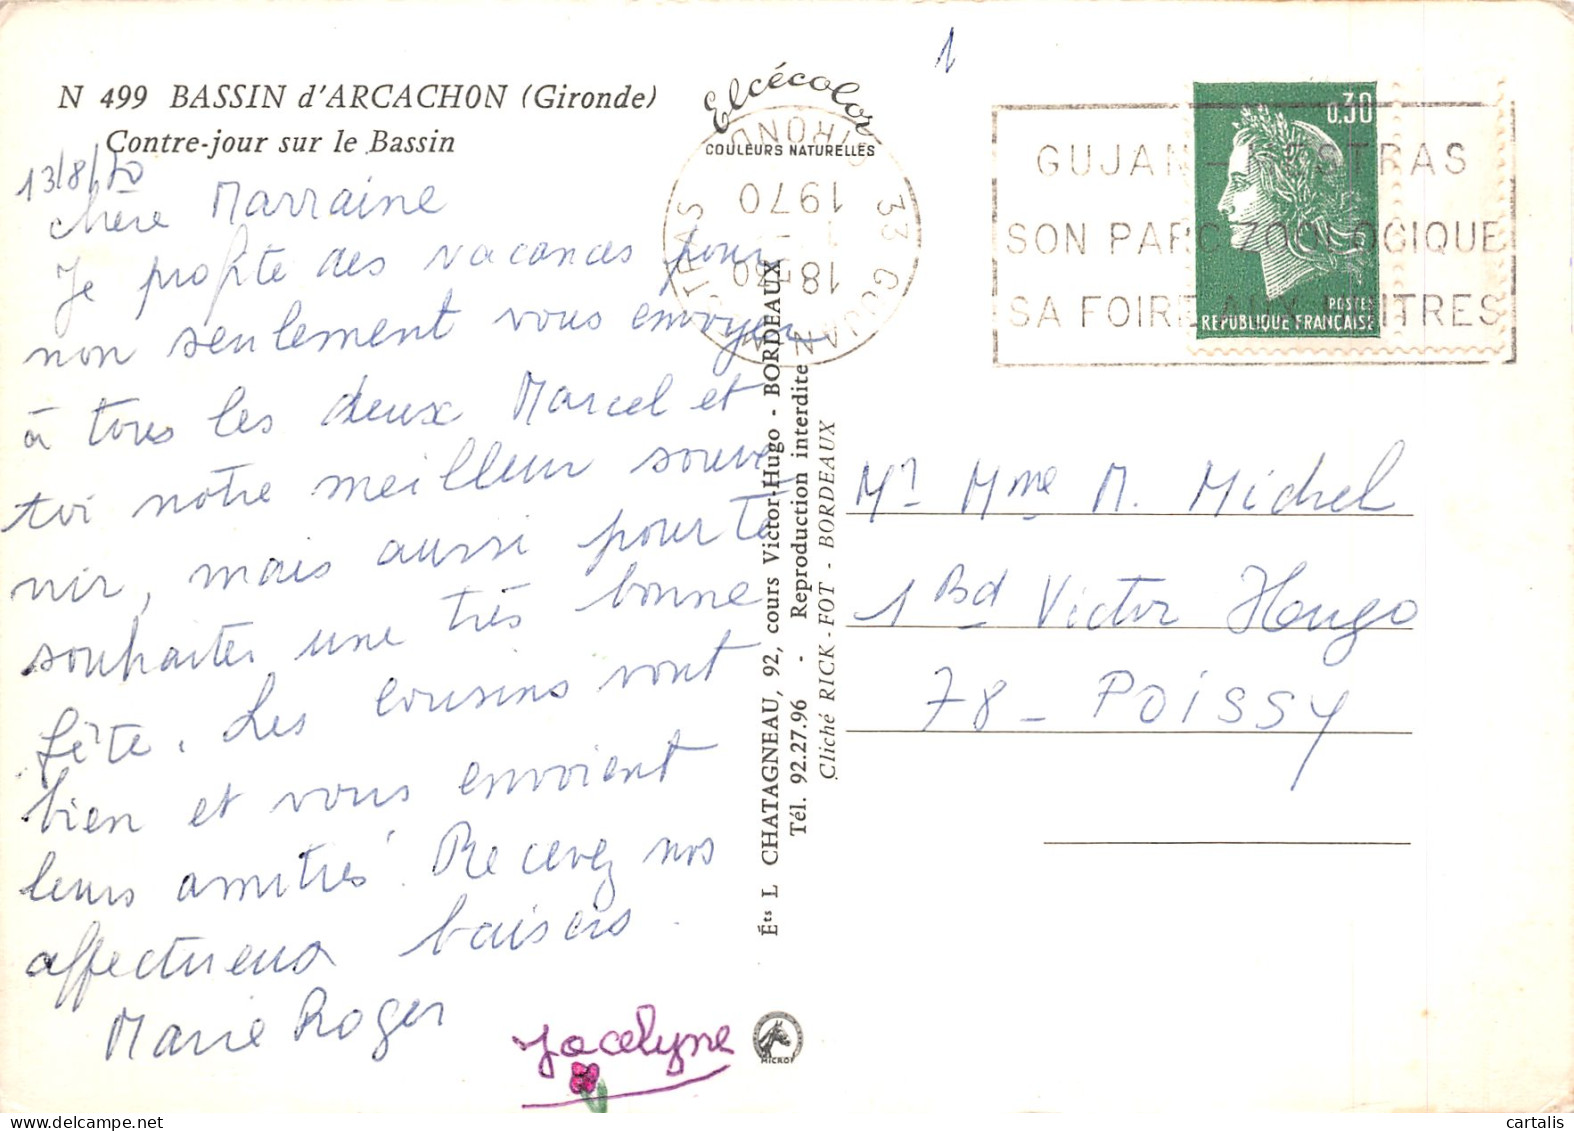 N 499 BASSIN d'ARCACHON (Gironde)
Contre-jour sur le Bassin
13/8/70
chère Marraine
Je profite des vacances pour
non seulement vous envoyer
à tous les deux Marcel et
toi notre meilleur souve
nir, mais aussi pour te
souhaiter une très bonne
fête. Les cousins vont
bien et vous envoient
leurs amitiés. Recevez nos
affectueux baisers.
Marie Roger
Jocelyne
Elcécolor
COULEURS NATURELLES
33 GUJAN MESTRAS
GIRONDE
18H30
1970
Éts L CHATAGNEAU, 92, cours Victor-Hugo - BORDEAUX
Tél. 92.27.96 - Reproduction interdite
Cliché RICK-FOT - BORDEAUX
MICROF
1
GUJAN-MESTRAS
SON PARC ZOOLOGIQUE
SA FOIRE AUX HUITRES
0,30
POSTES
REPUBLIQUE FRANCAISE
Mr Mme M. Michel
1 Bd Victor Hugo
78 - POISSY
cartalis